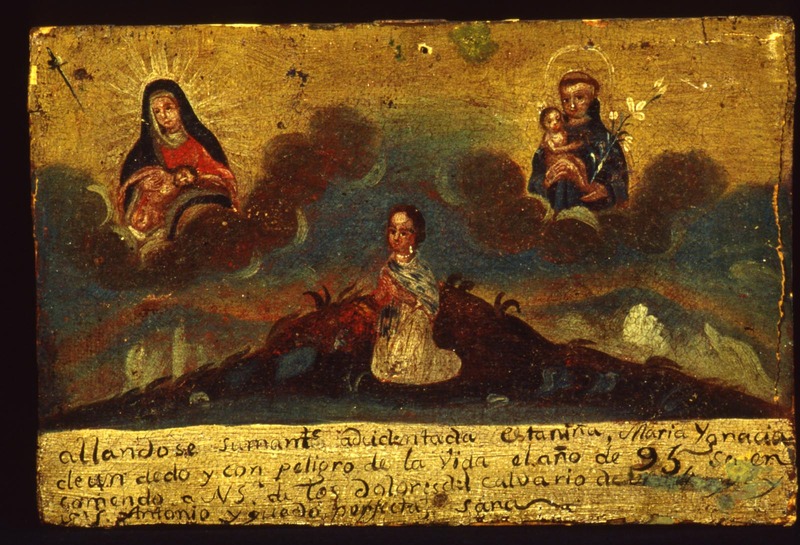 allandose sumante acidentada esta niña, Maria Ygnacia
de un dedo y con peligro de la vida el año de 95 se en
comendo a NS. de los Dolores del calvario de
S. Antonio y quedo perfecta, sana